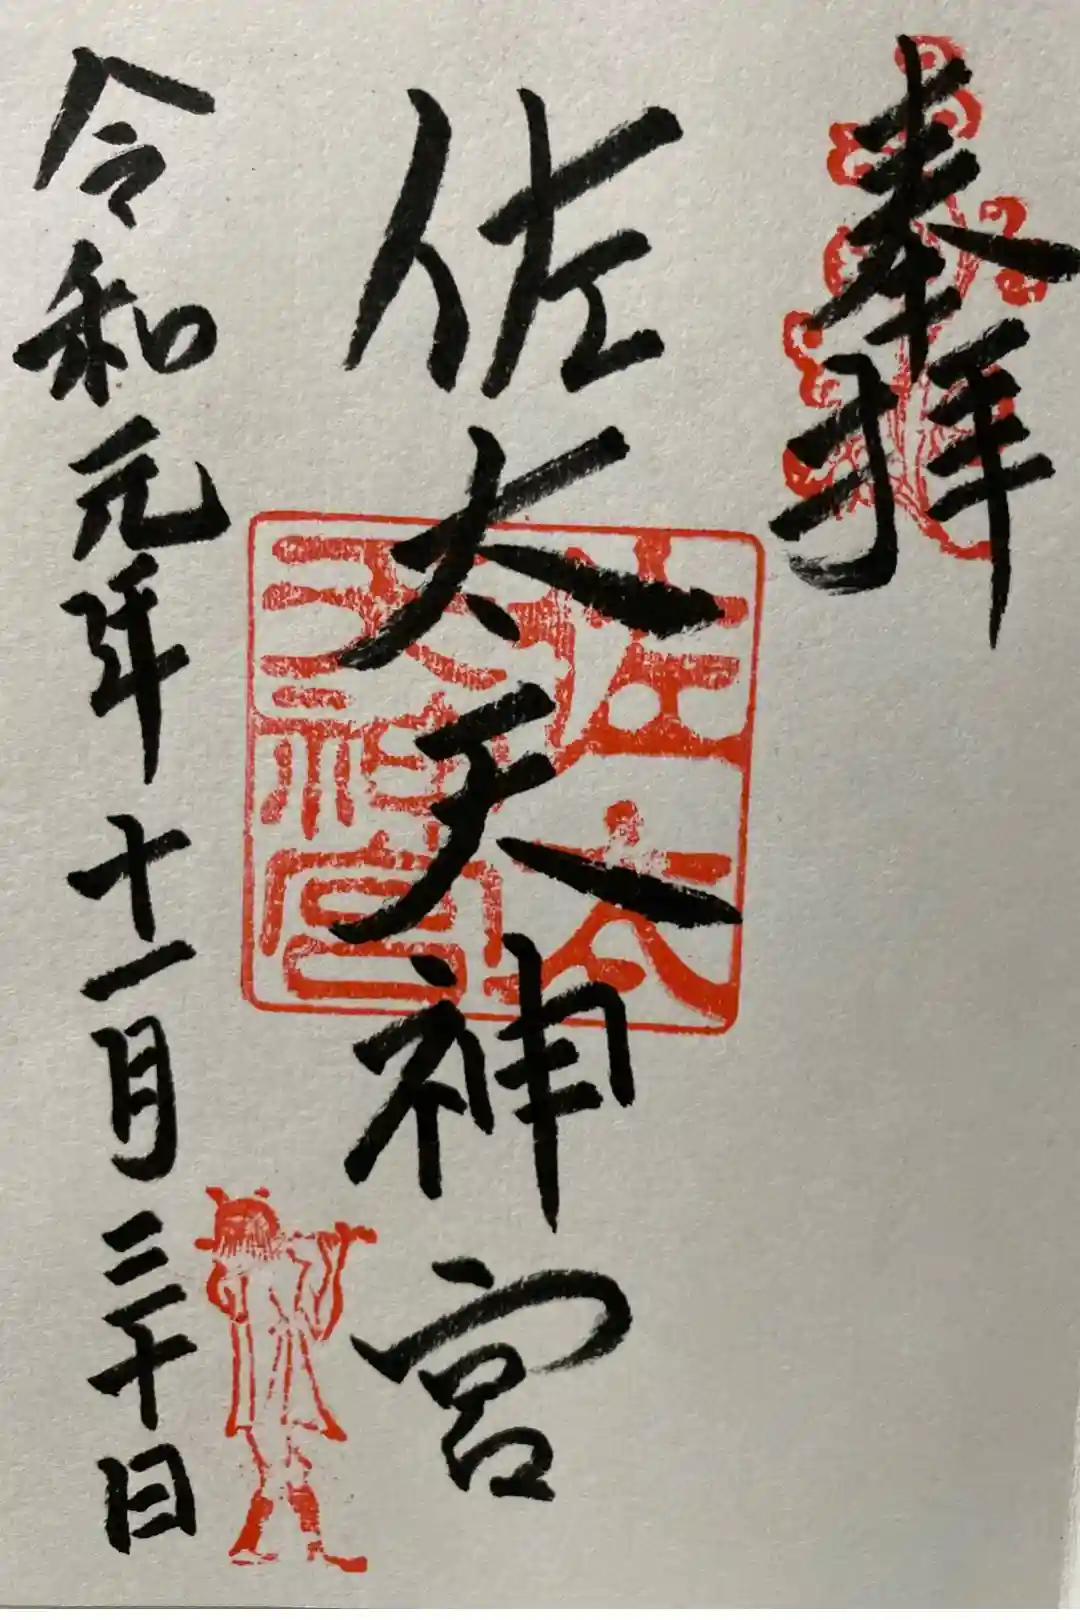 奉拝
佐太天神宮
佐太
天神宮
令和元年十一月三十日